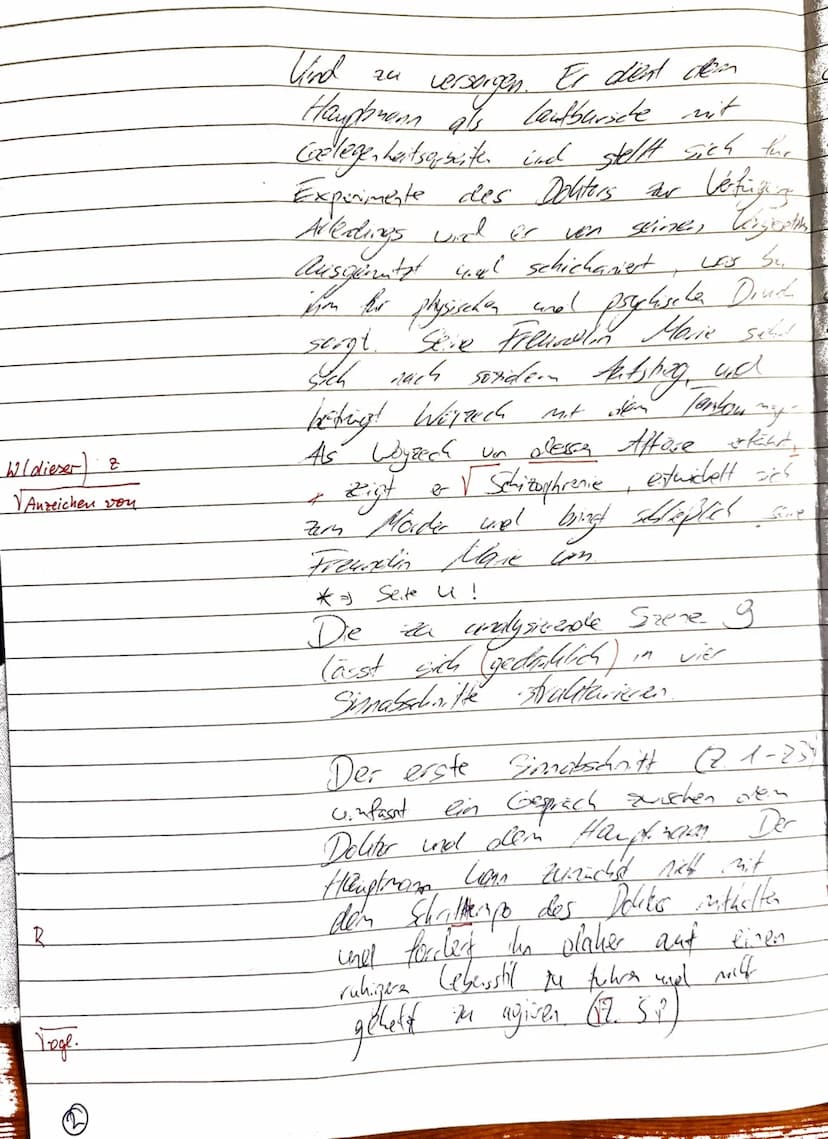 Und zu versorgen. Er dient dem
Hauptmann als Laufbursche mit
Gelegenheitsarbeiten und stellt sich für
Experimente des Doktors zur Verfügung
Allerdings wird er von seinen
ausgenutzt und schickaniert, was bei
ihm für physischen und psychischen Druck
sorgt. Seine Freundin Marie sehnt
sich nach sozialem Aufstieg und
betrügt Woyzeck mit dem
Als Woyzeck von dessen Affäre erfährt,
W (dieser) z
zeigt er √ Schizophrenie, entwickelt sich
√Anzeichen von
zum Mörder und bringt schließlich seine
Freundin Marie um.
* => Seite 4!
Die zu analysierende Szene 9
lässt sich (gedanklich) in vier
Sinnabschnitte strukturieren.
Der erste Sinnabschnitt (Z. 1-23)
umfasst ein Gespräch zwischen dem
Doktor und dem Hauptmann. Der
Hauptmann kann zunächst nicht mit
dem Schritttempo des Doktors mithalten
R
und fordert ihn daher auf einen
ruhigeren Lebensstil zu führen und nicht
gehetzt zu agieren. (√Z. 5f)
√vgl.
2